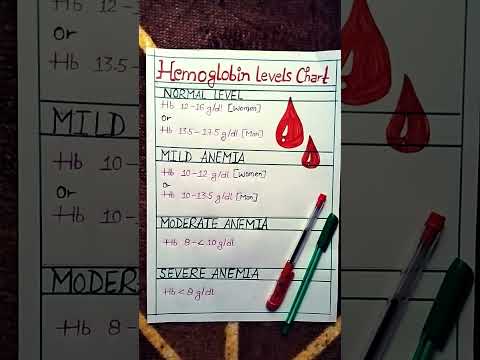 Hemoglobin levels Chart
NORMAL LEVEL
Hb 12-16 g/dl [Women]
or
Hb 13.5-17.5 g/dl [Man]
MILD ANEMIA
Hb 10-12 g/dl [Women]
or
Hb 10-13.5 g/dl [Man]
MODERATE ANEMIA
Hb 8-<10 g/dl
SEVERE ANEMIA
Hb < 8 g/dl
Hb 12-1
Or
Hb 13.5-
MILD
Hb 10-
Or
Hb 10-
MODER
Hb 8-